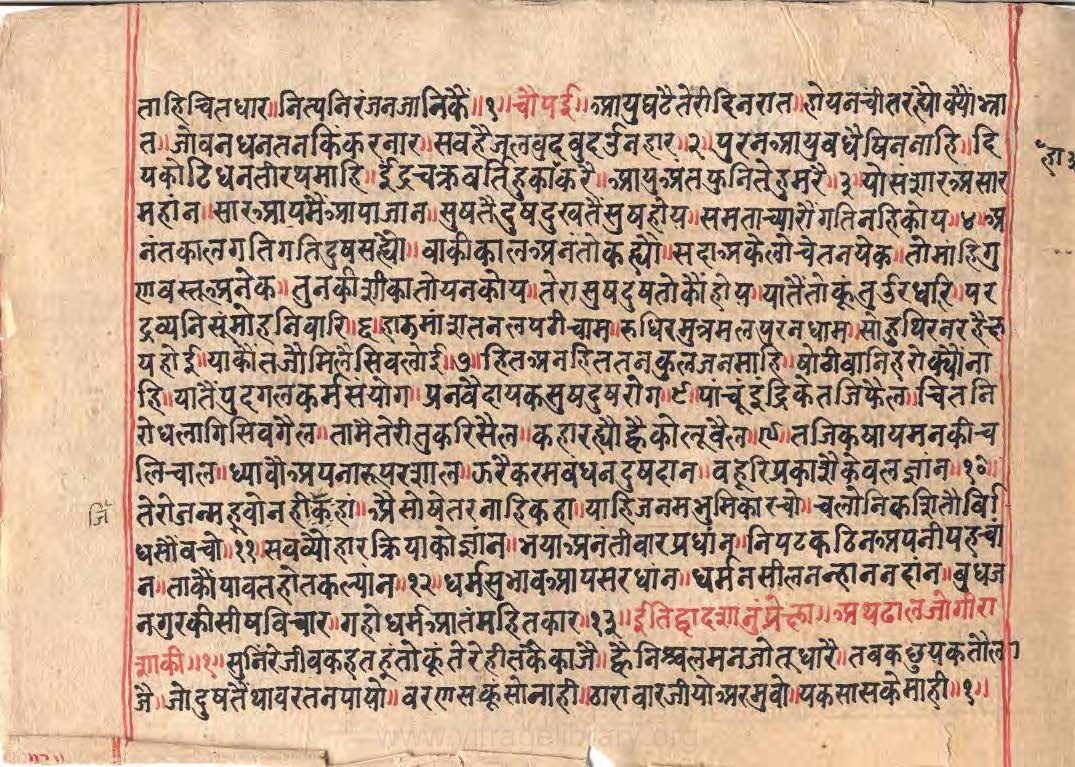 ताहिचितधार॥नित्यनिरंजनजानिकैं॥१॥चौपई॥आयुघटैतेरीदिनरात॥होयनचींतरह्यौक्यौंभ्रा
त॥जोवनधनतनकिंकरनार॥सवहैजलवुदवुदउनहार॥२॥पुरनआयुवधैषिननाहि॥दि
यकोटिधनतीरथमाहि॥ईंद्रचक्रवर्तिहुकांकरै॥आयुअंतफुनितेहुमरै॥३॥योसंशारअसार
महांन॥सारआपमैंआपाजान॥सुषतैंदुषदुखतैंसुषहोय॥समताच्यारौंगतिनहिकोय॥४॥अ
नंतकालगतिगतिदुषसंह्यौ॥वाकीकालअनंतोकह्यो॥सदाअकेलोचेतनयेक॥तोमांहिगु
णवस्तअनेक॥तुनकीशीकातोयनकोय॥तेरासुषदुषतोकौंहोय॥यातैंतोकूंतूउरधारि॥पर
द्रव्यनिसंमोहनिवारि॥६॥हाडमांशतनलपटीचाम॥रुधिरमुत्रमलपुरनधाम॥सोहुथिरनरहैक्ष
यहोई॥याकौंतजौंमिलैसिवलोई॥७॥हितअनहिततनकुलजनमाहि॥षोटीवानिहरोक्यौंना
हि॥यातैंपुदगलकर्मसंयोग॥प्रनवैदायकसुषदुषरोग॥८॥पांचूंइंद्रिकेतजिफैल॥चितनि
रोधलागिसिवगैल॥तामैतेरीतुकरिसैल॥कहारह्यौह्वैकोलूवैल॥९॥तजिकषायमनकीच
लिचाल॥ध्यावौअपनारूपरशाल॥ऊरैकरमवधनदुषदान॥वहूरिप्रकाशैकेवलज्ञांन॥१०॥
तेरोजन्महूवोनहीकहां॥असोषेतरनाहिकहा॥याहिजनमभुमिकारचो॥चलोनिकशितौवि
धसौंवचो॥११॥सवव्यौहारक्रियाकोज्ञांन॥भयाअनंतीवारप्रधांन॥निपटकठिनअपनीपहचां
न॥ताकौंपावतहोतकल्यांन॥१२॥धर्मसुभावआपसरधांन॥धर्मनसीलनन्हाननदांन॥वुधज
नगुरकीसीषविचार॥गहोधर्मआतंमहितकार॥१३॥ईतिद्वादशानुंप्रेक्षा॥अथढालजोगीरा
शाकी॥१॥सुनिरेजीवकहतहुतोकूंतेरेहीतकैकाजै॥ह्वैनिश्चलमनजोतूधारै॥तवकछुयकतौल
जै॥जोदुषतैंथावरतनपायो॥वरणसकूसोनाही॥ठारावारजीयोअरमुवो॥यकसासकेमाही॥१॥
जि
www.vitragelibrary.org